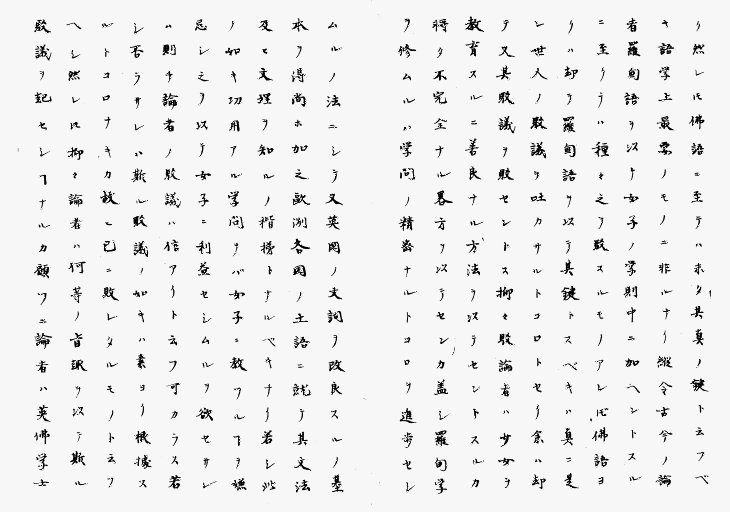 ク然レ𪜈佛語ニ至テハホタ其真ノ鍵ト云フベ
キ語学上最要ノモノニ非ルナリ縱令古今ノ論
者羅甸語ヲ以テ女子ノ学則中ニ加ヘントスル
ニ至リテハ種々之ヲ駁スルモノアレ𪜈佛語ヨ
リハ却テ羅甸語ヲ以テ其鍵トスベキハ真ニ是
レ世人ノ駁議ヲ吐カサルトコロトセリ余ハ却
テ又其駁議ヲ駁セントス抑々駁論者ハ少女ヲ
教育スルニ善良ナル方法ヲ以テセントスルカ
将タ不完全ナル畧方ヲ以テセンカ蓋シ羅甸学
ヲ修ムルハ学問ノ精密ナルトコロヲ進歩セシ
ムルノ法ニシテ又英国ノ文詞ヲ改良スルノ基
本ヲ得尚ホ加之歐洲各国ノ土語ニ就テ其文法
及ヒ文理ヲ知ルノ楷梯トナルベキナリ若シ此
ノ如キ功用アル学問ヲバ女子ニ教フルヿヲ嫌
忌シ之ヲ以テ女子ニ利益セシムルヲ欲セサレ
ハ則チ論者ノ駁議ハ信アリト云フ可カラス若
シ否ラサレハ斯ル駁議ノ如キハ素ヨリ根據ス
ルトコロナキカ故ニ已ニ敗レタルモノト云ツ
ヘシ然レ𪜈抑々論者ハ何等ノ旨訳ヲ以テ斯ル
駁議ヲ起セシヿナルカ顧フニ論者ハ英佛学士